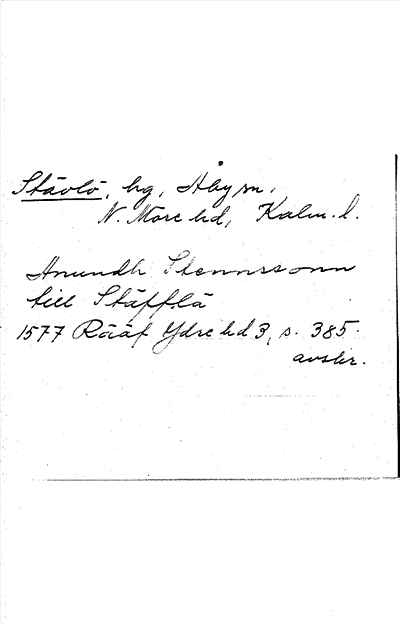 Stävlö, hg, Åby sn,
N. Möre hd, Kalm. l.
Amundh Stennssonn
till Stäfflä
1577 Rääf Ydre hd 3, s. 385.
avskr.